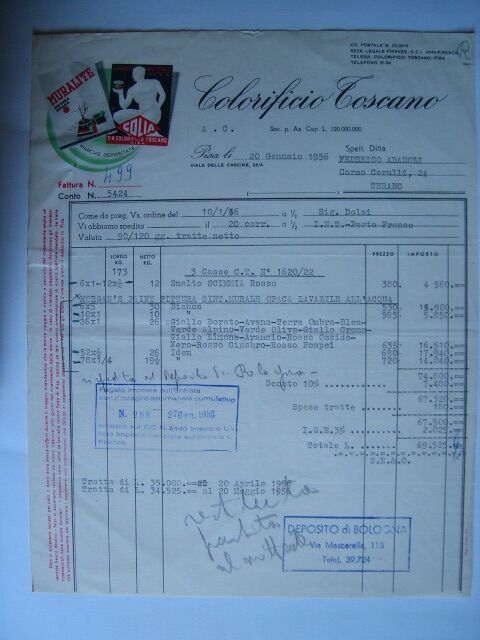 CIC POSTALE N. 22/2615
SEDE LEGALE FIRENZE - C.C.I. 4346 FIRENZE
TELEGR. COLORIFICIO TOSCANO - PISA
TELEFONO 31-84
R
MURALITE
GOLIA
S.A. COLORIFICIO TOSCANO
PISA
MARCHE DEPOSITATE
Colorificio Toscano
A. C. Soc. p. Az. Cap. L. 120.000.000
Pisa li 20 Gennaio 1956
VIALE DELLE CASCINE, 28/A
Spett. Ditta
FEDERICO ADAMOLI
Corso Cerulli, 24
TERAMO
Fattura N. 499
Conto N. 5424
Come da preg. Vs. ordine del 10/1/56 a ½ Sig. Dolci
Vi abbiamo spedito il 20 corr. a ½ I.N.T.-Porto Franco
Valuta 90/120 gg. tratte netto
LORDO KG. NETTO KG. PREZZO IMPORTO
173 3 Casse C.T. N° 1620/22
6x1-12x½ 12 Smalto SCIMMIA Rosso 380 4 560.==
MORGAN'S PAINT PITTURA SINT.MURALE OPACA LAVABILE ALL'ACQUA
6x5 30 Bianca 530 15.900.==
10x1 10 " 585 5.850.==
26x1 26 Giallo Dorato-Avana-Terra Ombra-Bleu-
Verde Alpino-Verde Oliva-Giallo Cromo-
Giallo Limone-Arancio-Rosso Ossido-
Nero-Rosso Cinabro-Rosso Pompei 635 16.510.==
52x½ 26 Idem 690 17.940.==
76x1/4 19 " 720 14.040.==
74.800.==
Sconto 10% 7.480.==
67.320.==
Spese tratte 180.==
67.500.==
I.G.E. 3% 2.025.==
Totale L. 69.525.==
S.E.&O.
spedita al Deposito di Bologna
Pagato imposta sull'entrata
con conteggio settimanale cumulativo
N. 298 27 Gen. 1956
Tratta di L. 35.000.== al 20 Aprile 1956
Tratta di L. 34.525.== al 20 Maggio 1956
al mittente
DEPOSITO di BOLOGNA
Via Mascarella, 115
Telef. 39.724